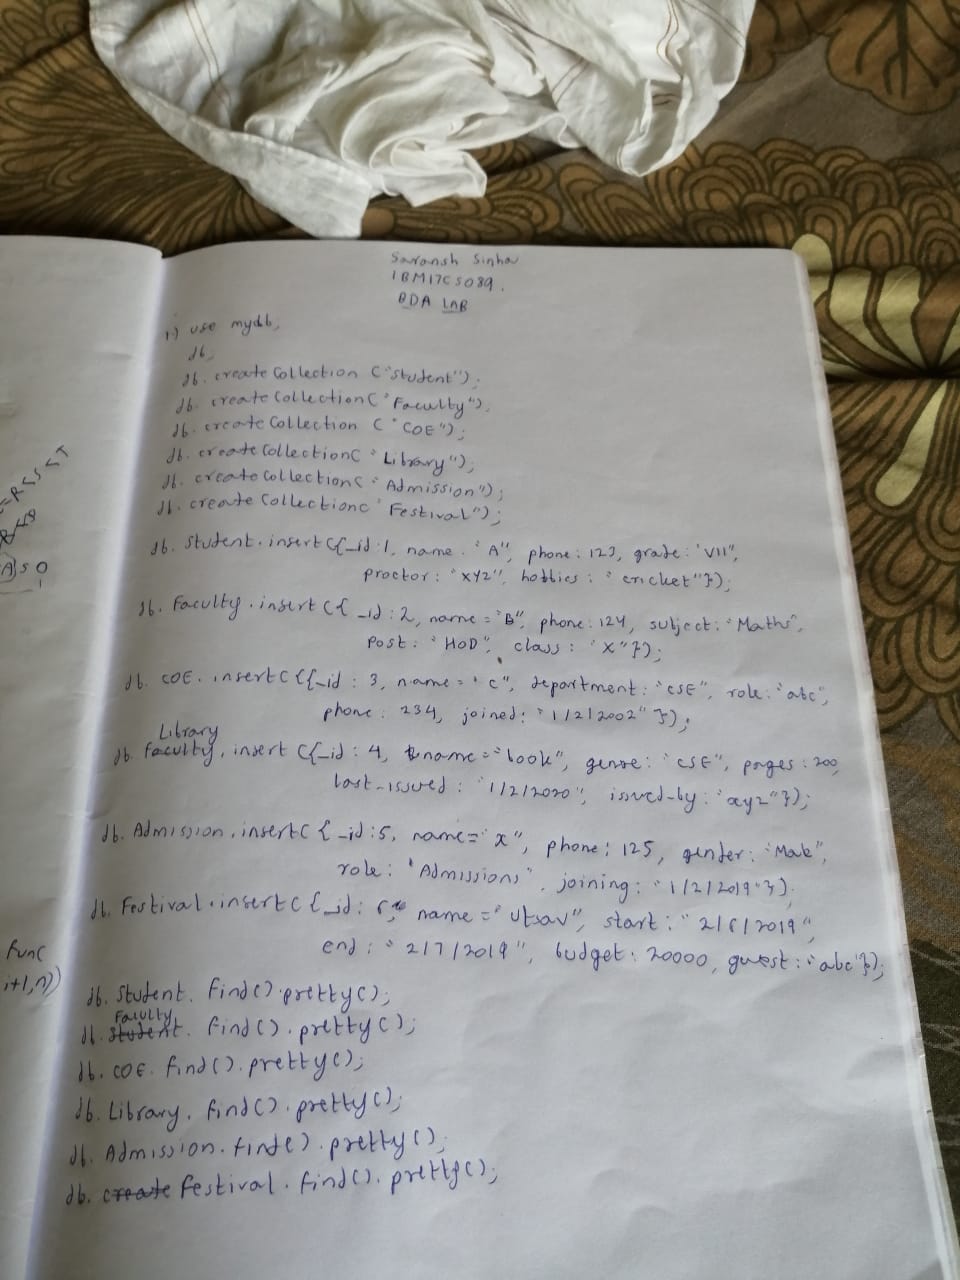 Saransh Sinha
1BM17CS089.
BDA LAB
1.) use mydb;
db;
db. create Collection ("Student");
db. create Collection ("Faculty");
db. create Collection ("COE");
db. create Collection ("Library");
db. create Collection ("Admission");
db. create Collection ("Festival");
db. Student. insert ({_id:1, name: "A", phone: 123, grade: "VII",
proctor: "xyz", hobbies: "cricket"});
db. Faculty. insert ({_id:2, name = "B", phone: 124, subject: "Maths",
Post: "HOD", class: "X"});
db. COE. insert ({{_id: 3, name = "C", department: "CSE", role: "abc",
phone: 234, joined: "1/2/2002"});
Library
db. Faculty. insert ({_id: 4, name = "book", genre: "CSE", pages: 200,
last-issued: "1/2/2020", issued-by: "xyz"});
db. Admission. insert ({_id:5, name = "x", phone: 125, gender: "Male",
role: "Admissions", joining: "1/2/2019"});
db. Festival. insert ({_id: 6, name = "Utsav", start: "2/6/2019"
end: "2/7/2019", budget: 20000, guest: "abc"});
func
i+1,n))
db. Student. find().pretty();
Faculty
db. Student. find().pretty();
db. COE. find().pretty();
db. Library. find().pretty();
db. Admission. find().pretty();
db. create Festival. find().pretty();